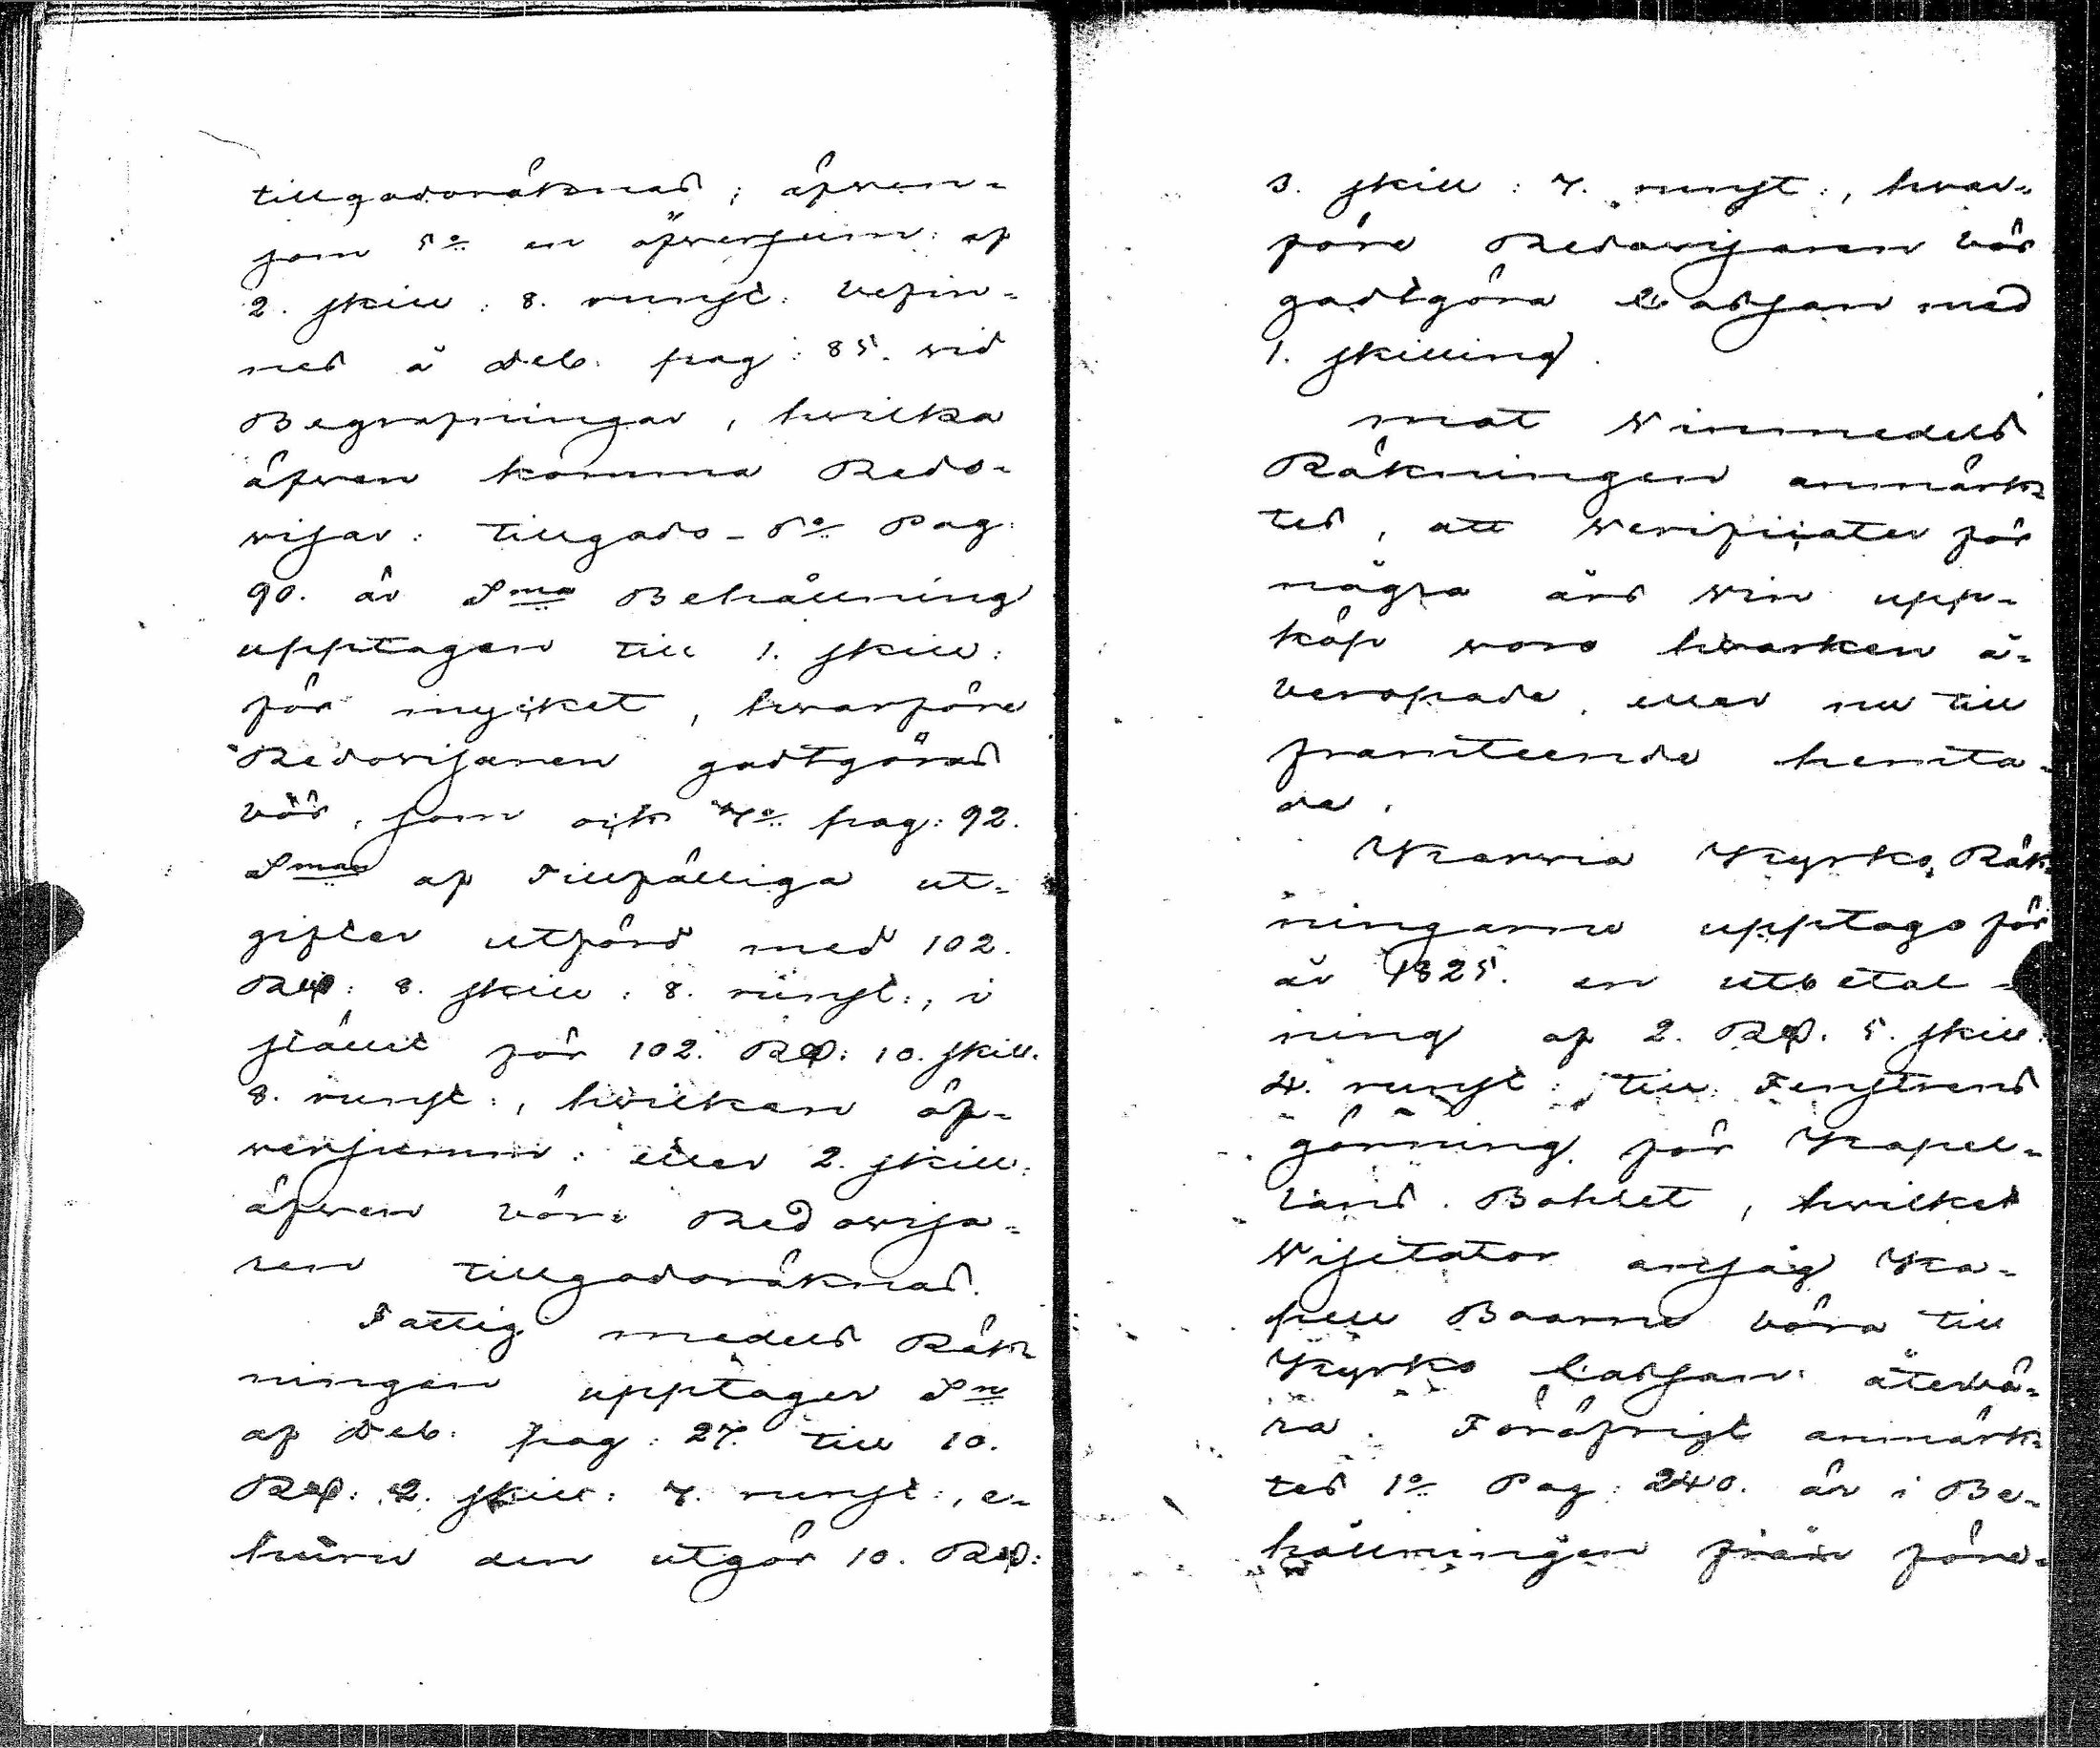 tillgodoräknas; äfwen-
som 5o en öfwersum: af
2. skill: 8. runst: befin-
nes å Deb. pag: 85. wid
Begrafningar, hwilka
äfwen komma Redo-
wisar: tillgodo_ 6o Pag:
90. är Sma Behållning
upptagen till 1. skill:
för mycket, hwarföre
Redowisaren godtgöras
bör, som ock 7o pag: 92.
Sman af Tillfälliga ut-
gifter utförd med 102.
Rub: 8. skill: 8. runst:, i
stället för 102. Rub: 10. skill.
8. runst:, hwilken öf-
wersumm: eller 2. skill:
äfwen bör: Redowisa-
ren tillgodoräknas.
Fattig medels Räk-
ningen upptager Sn
af Deb: pag: 27. till 10.
Rub: 2. skill: 7. runst:, e-
huru den utgör 10. Rub:
3. skill: 7. runst:, hwar-
före Redowisaren bör
godtgöra Cassan med
1. skilling.
mot Winmedels
Räkningen anmärk-
tes, att Verificater för
några års Win upp-
köp woro hwarken å-
beropade, eller nu till
framteende hemta-
de.
Karwia Kyrko Räk-
ningarne upptogo för
år 1825. en utbetal-
ning af 2. Rub. 5. skill:
4. runst: till Fenstrens
görning för Kapel-
lans Bohlet, hwilket
Visitator ansåg Ka-
pell Boarne böra till
Kyrko Cassan återbä-
ra. Föröfrigt anmärk-
tes 1o Pag: 240. är i Be-
hållningen från före-